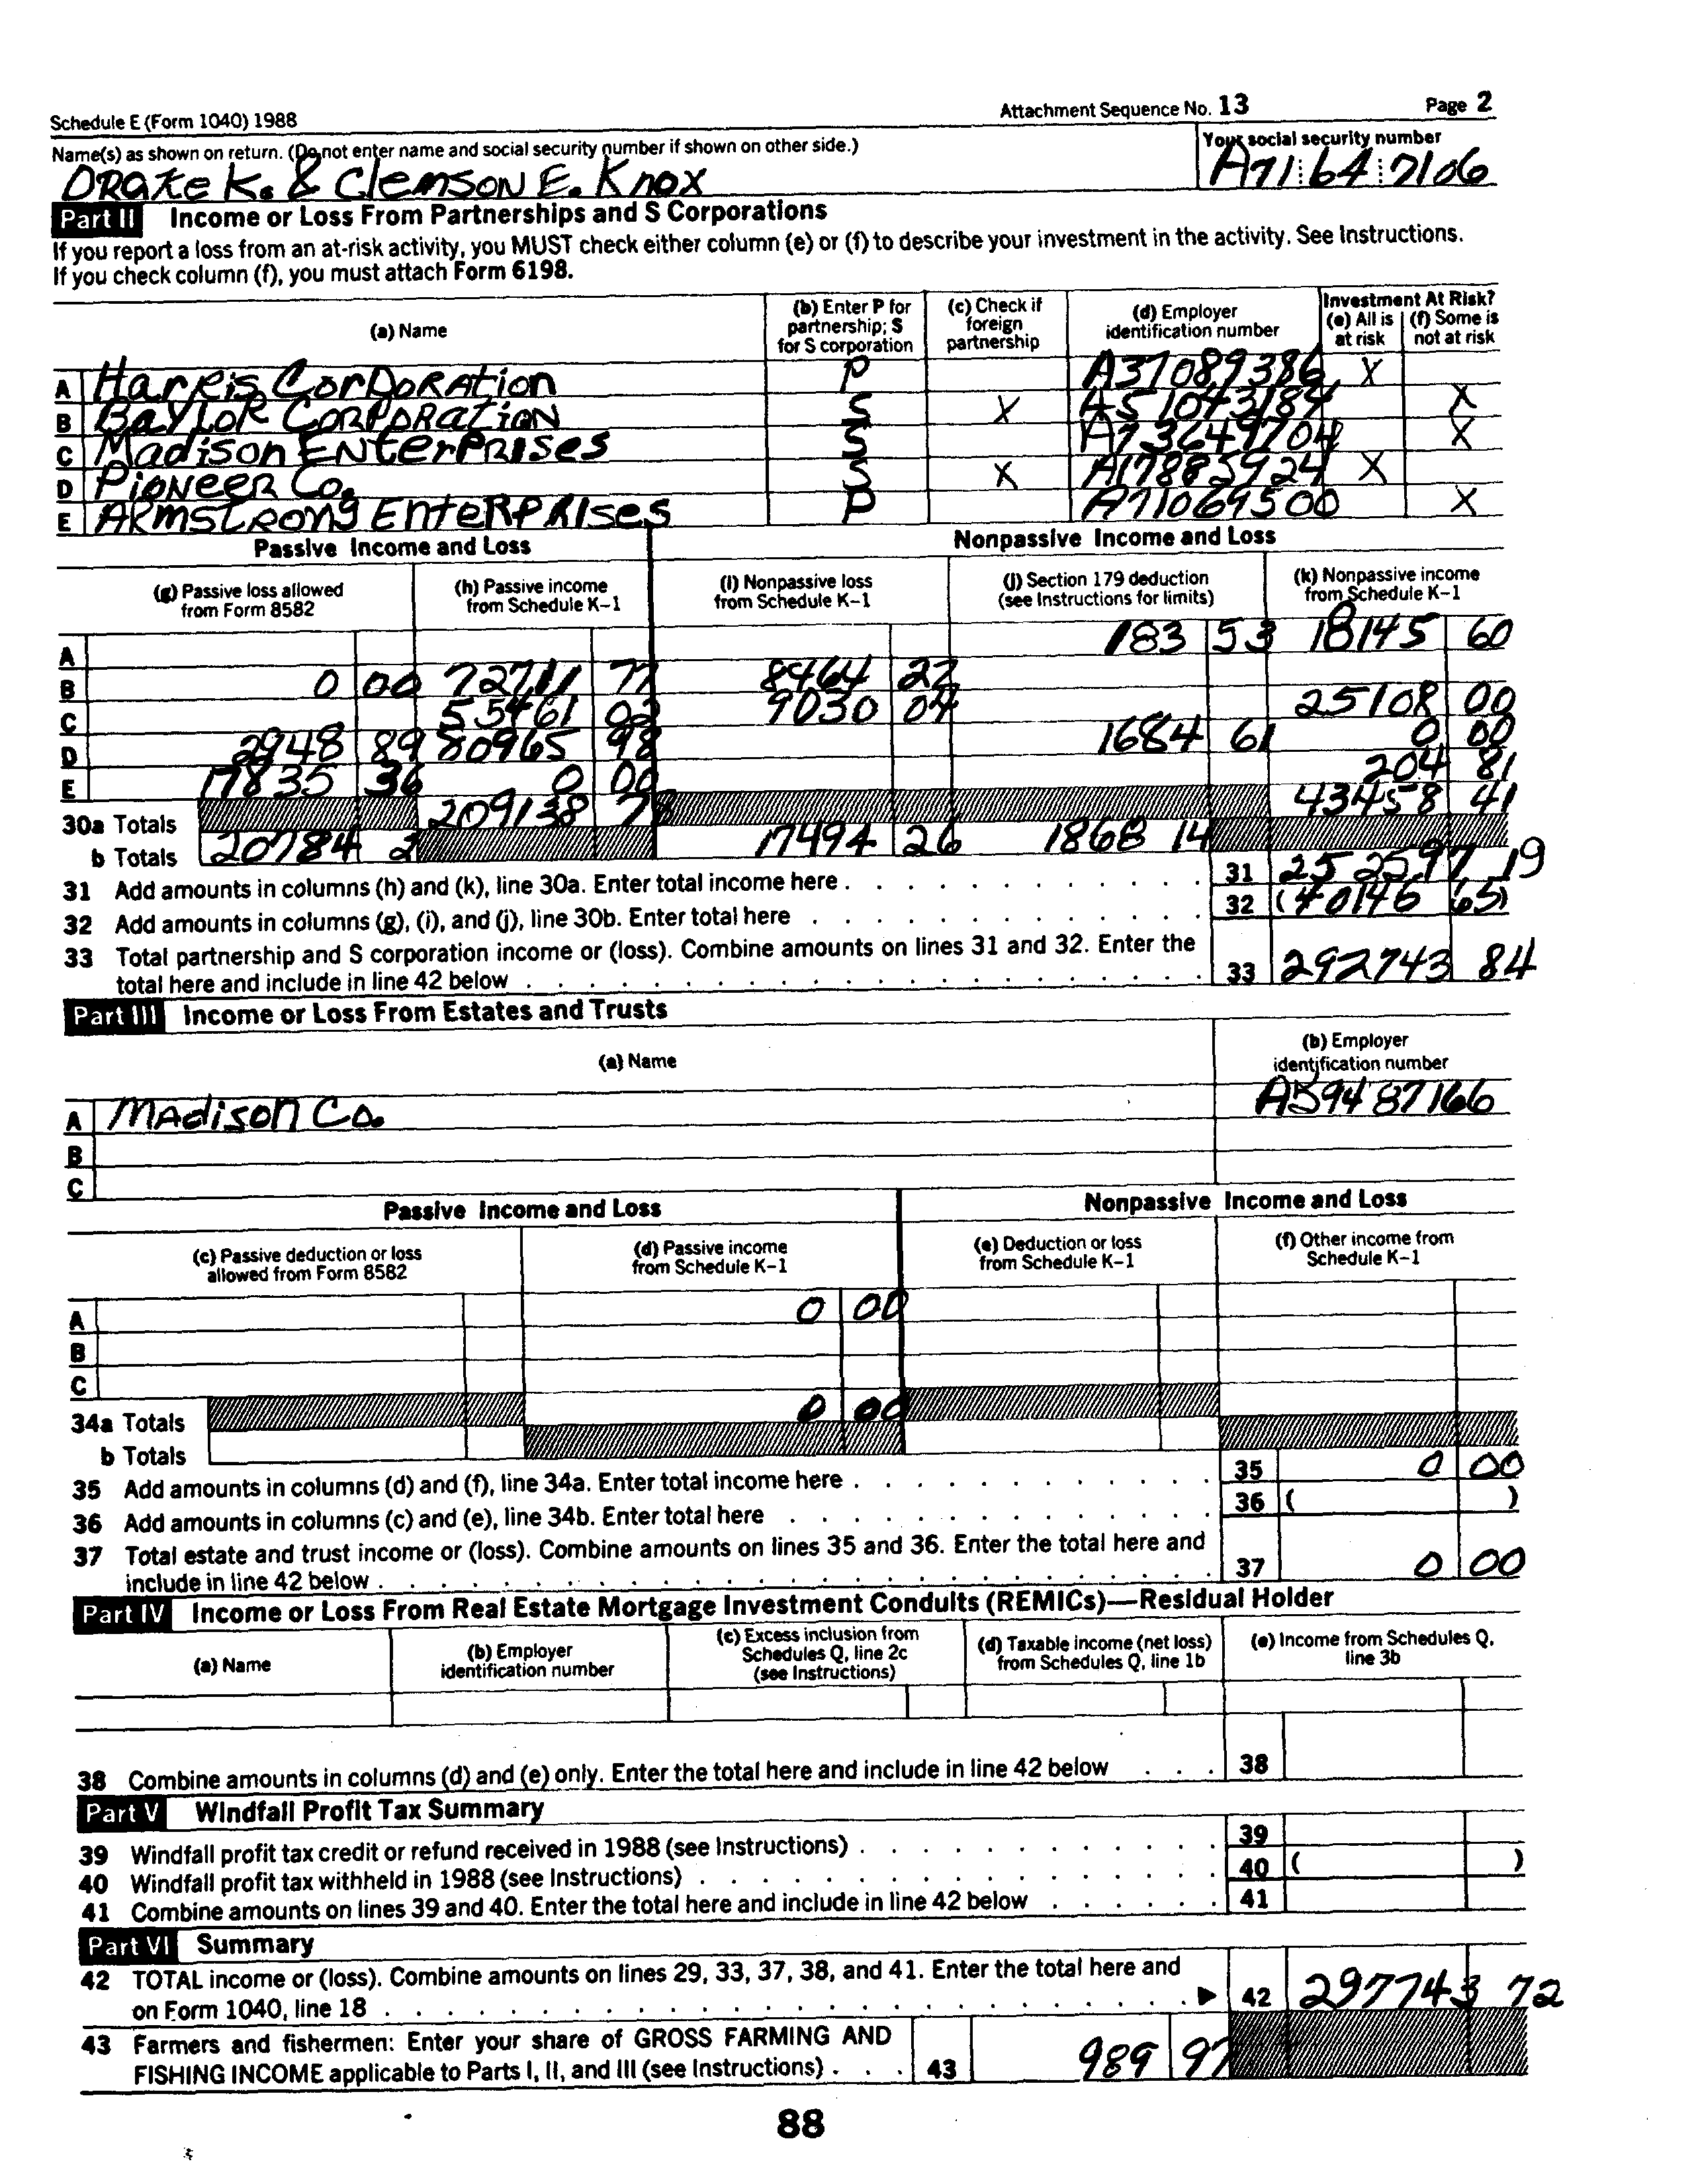 Schedule E (Form 1040) 1988 Attachment Sequence No. 13 Page 2
Name(s) as shown on return. (Do not enter name and social security number if shown on other side.) Your social security number
DRAKE K. & Clemson E. Knox A71 64 7106
Part II Income or Loss From Partnerships and S Corporations
If you report a loss from an at-risk activity, you MUST check either column (e) or (f) to describe your investment in the activity. See Instructions.
If you check column (f), you must attach Form 6198.
(a) Name (b) Enter P for partnership; S for S corporation (c) Check if foreign partnership (d) Employer identification number Investment At Risk? (e) All is at risk (f) Some is not at risk
A Harris Corporation P A37089386 X
B Baylor Corporation S X A51043184 X
C Madison Enterprises S A73649704 X
D Pioneer Co. S X A17885924 X
E Armstrong Enterprises P A71069500 X
Passive Income and Loss Nonpassive Income and Loss
(g) Passive loss allowed from Form 8582 (h) Passive income from Schedule K-1 (i) Nonpassive loss from Schedule K-1 (j) Section 179 deduction (see Instructions for limits) (k) Nonpassive income from Schedule K-1
A 183 53 18145 60
B 0 00 72711 77 8464 22
C 55461 02 9030 04 25108 00
D 2948 89 80965 98 1684 61 0 00
E 17835 36 0 00 204 81
30a Totals 209138 78 43458 41
b Totals 20784 2 17494 26 1868 14
31 Add amounts in columns (h) and (k), line 30a. Enter total income here 31 252597 19
32 Add amounts in columns (g), (i), and (j), line 30b. Enter total here 32 (40146 65)
33 Total partnership and S corporation income or (loss). Combine amounts on lines 31 and 32. Enter the
total here and include in line 42 below 33 292743 84
Part III Income or Loss From Estates and Trusts
(a) Name (b) Employer identification number
A Madison Co. A59487166
B
C
Passive Income and Loss Nonpassive Income and Loss
(c) Passive deduction or loss allowed from Form 8582 (d) Passive income from Schedule K-1 (e) Deduction or loss from Schedule K-1 (f) Other income from Schedule K-1
A 0 00
B
C
34a Totals 0 00
b Totals
35 Add amounts in columns (d) and (f), line 34a. Enter total income here 35 0 00
36 Add amounts in columns (c) and (e), line 34b. Enter total here 36 ( )
37 Total estate and trust income or (loss). Combine amounts on lines 35 and 36. Enter the total here and
include in line 42 below 37 0 00
Part IV Income or Loss From Real Estate Mortgage Investment Conduits (REMICs)—Residual Holder
(a) Name (b) Employer identification number (c) Excess inclusion from Schedules Q, line 2c (see Instructions) (d) Taxable income (net loss) from Schedules Q, line 1b (e) Income from Schedules Q, line 3b
38 Combine amounts in columns (d) and (e) only. Enter the total here and include in line 42 below 38
Part V Windfall Profit Tax Summary
39 Windfall profit tax credit or refund received in 1988 (see Instructions) 39
40 Windfall profit tax withheld in 1988 (see Instructions) 40 ( )
41 Combine amounts on lines 39 and 40. Enter the total here and include in line 42 below 41
Part VI Summary
42 TOTAL income or (loss). Combine amounts on lines 29, 33, 37, 38, and 41. Enter the total here and
on Form 1040, line 18 ▶ 42 297743 72
43 Farmers and fishermen: Enter your share of GROSS FARMING AND
FISHING INCOME applicable to Parts I, II, and III (see Instructions) 43 989 97
88